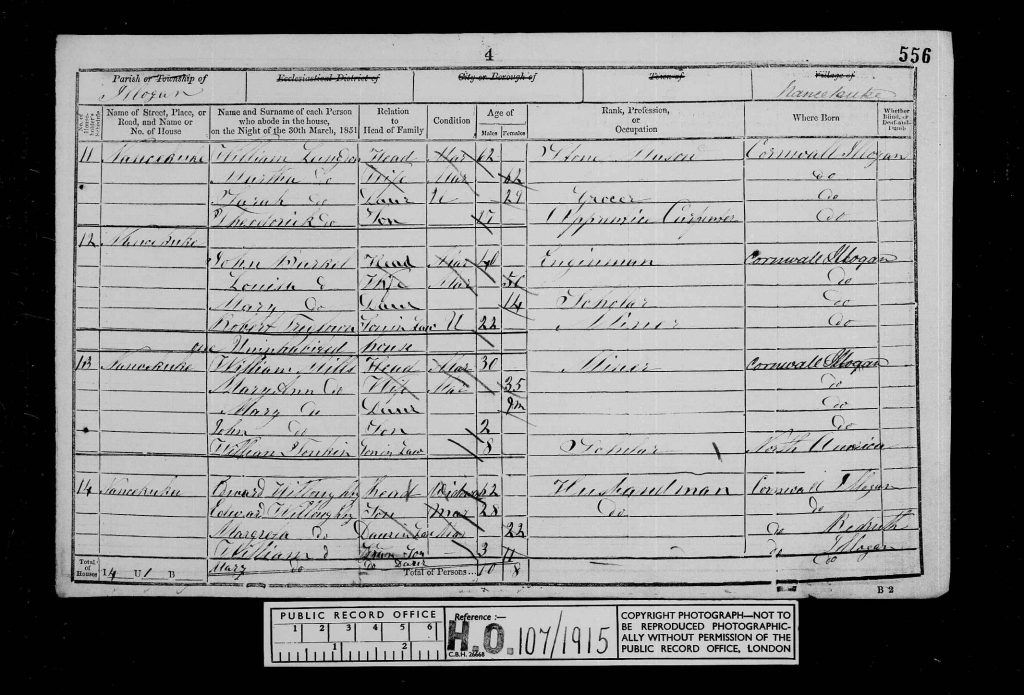 4
556
Parish or Township of Ecclesiastical District of City or Borough of Town of Village of
Illogan Nancekuke
No. of House-holder's Schedule Name of Street, Place, or Road, and Name or No. of House Name and Surname of each Person who abode in the house, on the Night of the 30th March, 1851 Relation to Head of Family Condition Age of Males Females Rank, Profession, or Occupation Where Born Whether Blind, or Deaf-and-Dumb
11 Nancekuke William Head Mar 62 Stone Mason Cornwall Illogan
Martha Do Wife Mar 62 do
Sarah do Daur U 29 Grocer do
Theodorick do Son 17 Apprentice Carpenter Do
12 Nancekuke
John Burkel Head Mar Engineman Cornwall Illogan
Louisa d Wife Mar Do
Mary Do Daur 14 Scholar Do
Robert Son in Law U 22 Miner do
one Uninhabited house
13 Nancekuke William Mills Head Mar 30 Miner Cornwall Illogan
Mary Ann Do Wife Mar 35 do
Mary Do Daur 9m Do
John do Son 2 Do
William Tonkin Son in Law 8 Scholar North America
14 Nancekuke Edward Willoughby head Widower 62 Husbandman Cornwall Illogan
Edward Willoughby Son Mar 28 Do do
do Daur in Law Mar 22 do Redruth
William d Son 3 do Illogan
Mary do do Daur 11 Do
Total of Houses 14 U1 B Total of Persons... 10 8
B 2
PUBLIC RECORD OFFICE
1 2 3 4 5 6
1 2
Reference :—
H.O. 107/1915
C.B.H. 26668
COPYRIGHT PHOTOGRAPH—NOT TO
BE REPRODUCED PHOTOGRAPHIC-
ALLY WITHOUT PERMISSION OF THE
PUBLIC RECORD OFFICE, LONDON